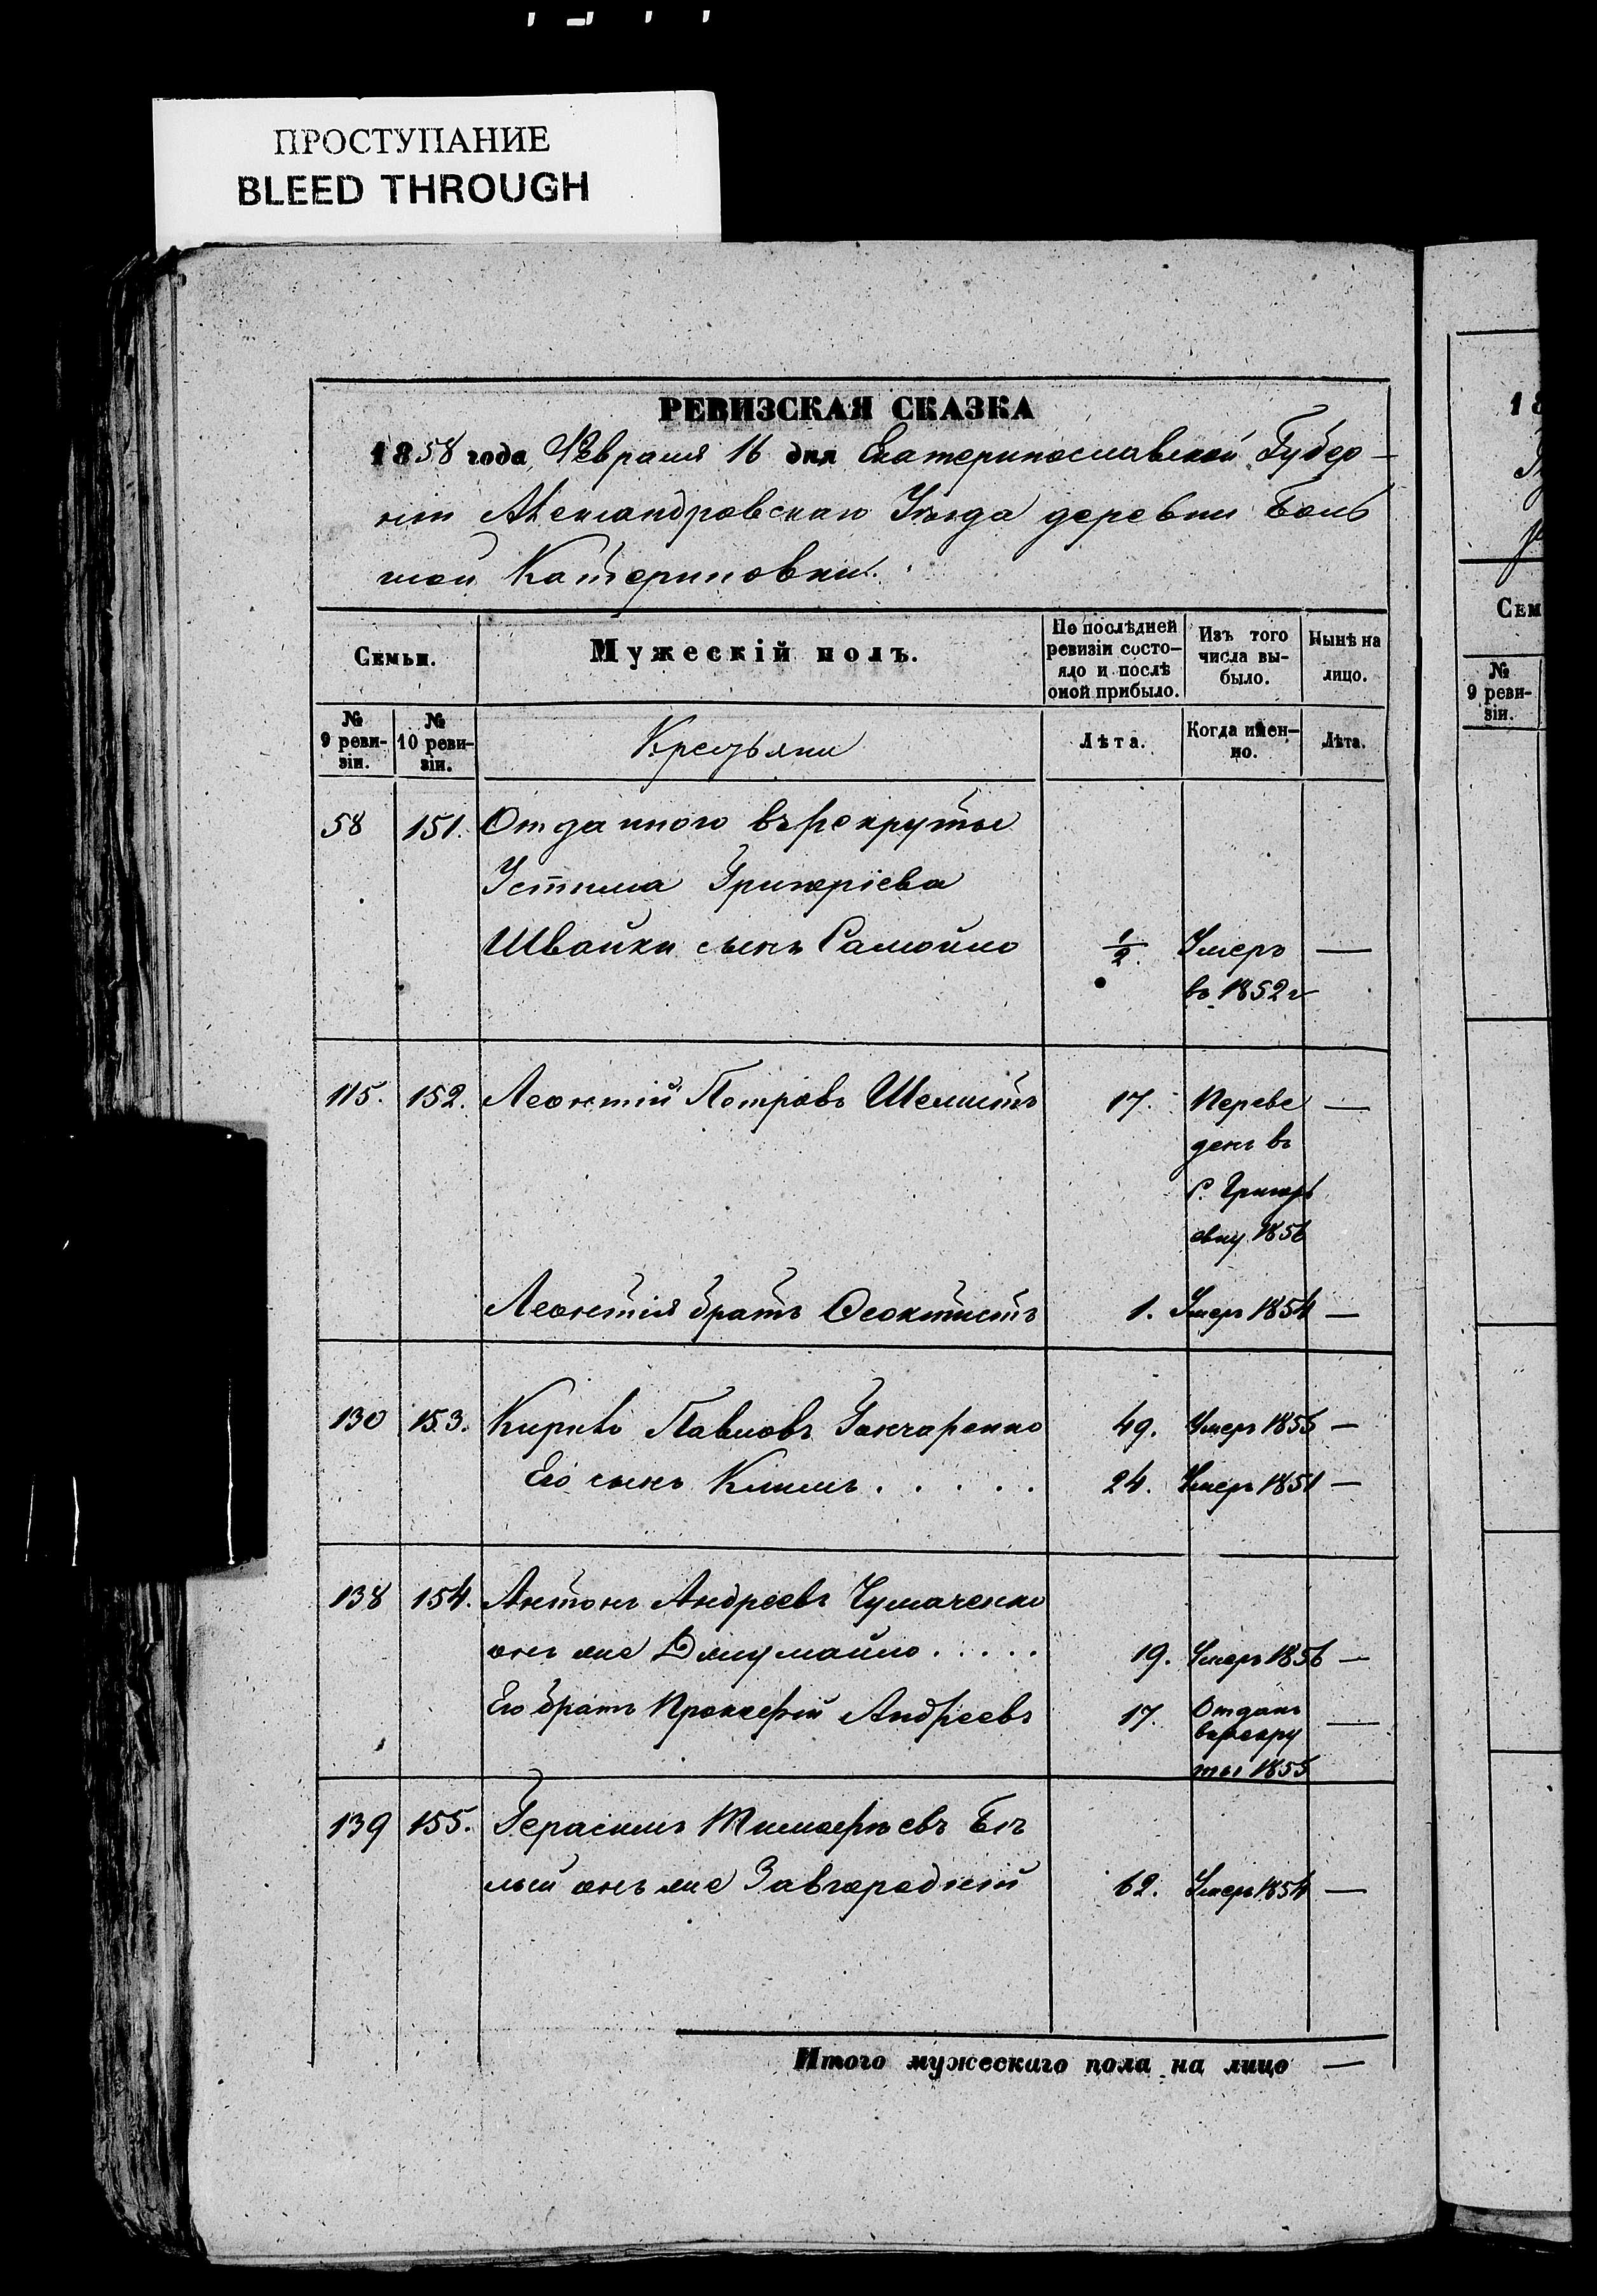 ПРОСТУПАНИЕ
BLEED THROUGH
РЕВИЗСКАЯ СКАЗКА
1858 года Февраля 16 дня Екатеринославской Губер-
ніи Александровскаго Уѣзда деревни Боль
шой Катериновки.
Семьи.
Мужескій полъ.
По послѣдней ревизіи состо-яло и послѣ оной прибыло.
Изъ того числа вы-было.
Нынѣ на лицо.
№ 9 реви-зіи.
№ 10 реви-зіи.
Крестьяни
Лѣта.
Когда имен-но.
Лѣта.
58 151. Отданного въ рекруты
Устима Григоріева
Швайки сынъ Самойло 1/2. Умеръ —
въ 1852 г
115. 152. Леонтій Петровъ 17. Переве —
денъ въ
С. Григорь
евку 1856
Леонтія братъ Феоктистъ 1. Умеръ 1854 —
130 153. Павловъ Гончаренко 49. Умеръ 1855 —
Его сынъ Климъ . . . . . 24. Умеръ 1851 —
138 154. Антонъ Андреевъ Чумаченко
онъ же . . . . . 19. Умеръ 1856 —
Его братъ Прокофій Андреевъ 17. Отданъ —
въ рекру
ты 1855
139 155. Герасимъ Тимофѣевъ Бѣ
лый онъ же Завгородній 62. Умеръ 1854 —
Итого мужескаго пола на лицо —
18
Сем
№
9 реви-
зіи.